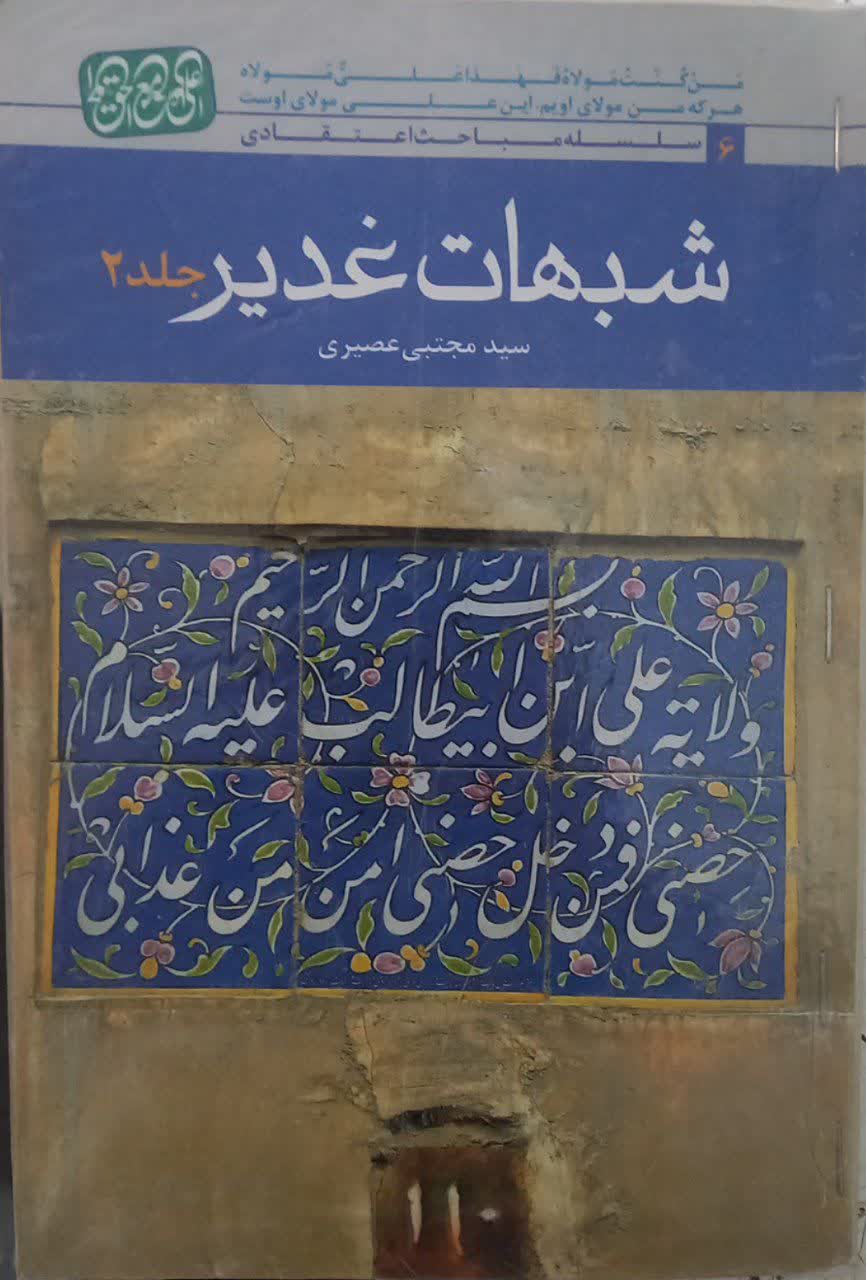 علی مع الحق
مَن کُنتُ مَولاهُ فَهذا عَلیٌّ مَولاه
هر که من مولای اویم، این علی مولای اوست
۶ سلسله مباحث اعتقادی
شبهات غدیر جلد ۲
سید مجتبی عصیری
بسم الله الرحمن الرحیم
ولایة علی ابن ابیطالب علیه السلام
حصنی فمن دخل حصنی امن من عذابی
۱۱۰